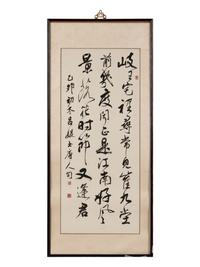 岐王宅裡尋常見崔九堂
前幾度聞正是江南好風
景落花時節又逢君
乙卯初冬呂書唐人句